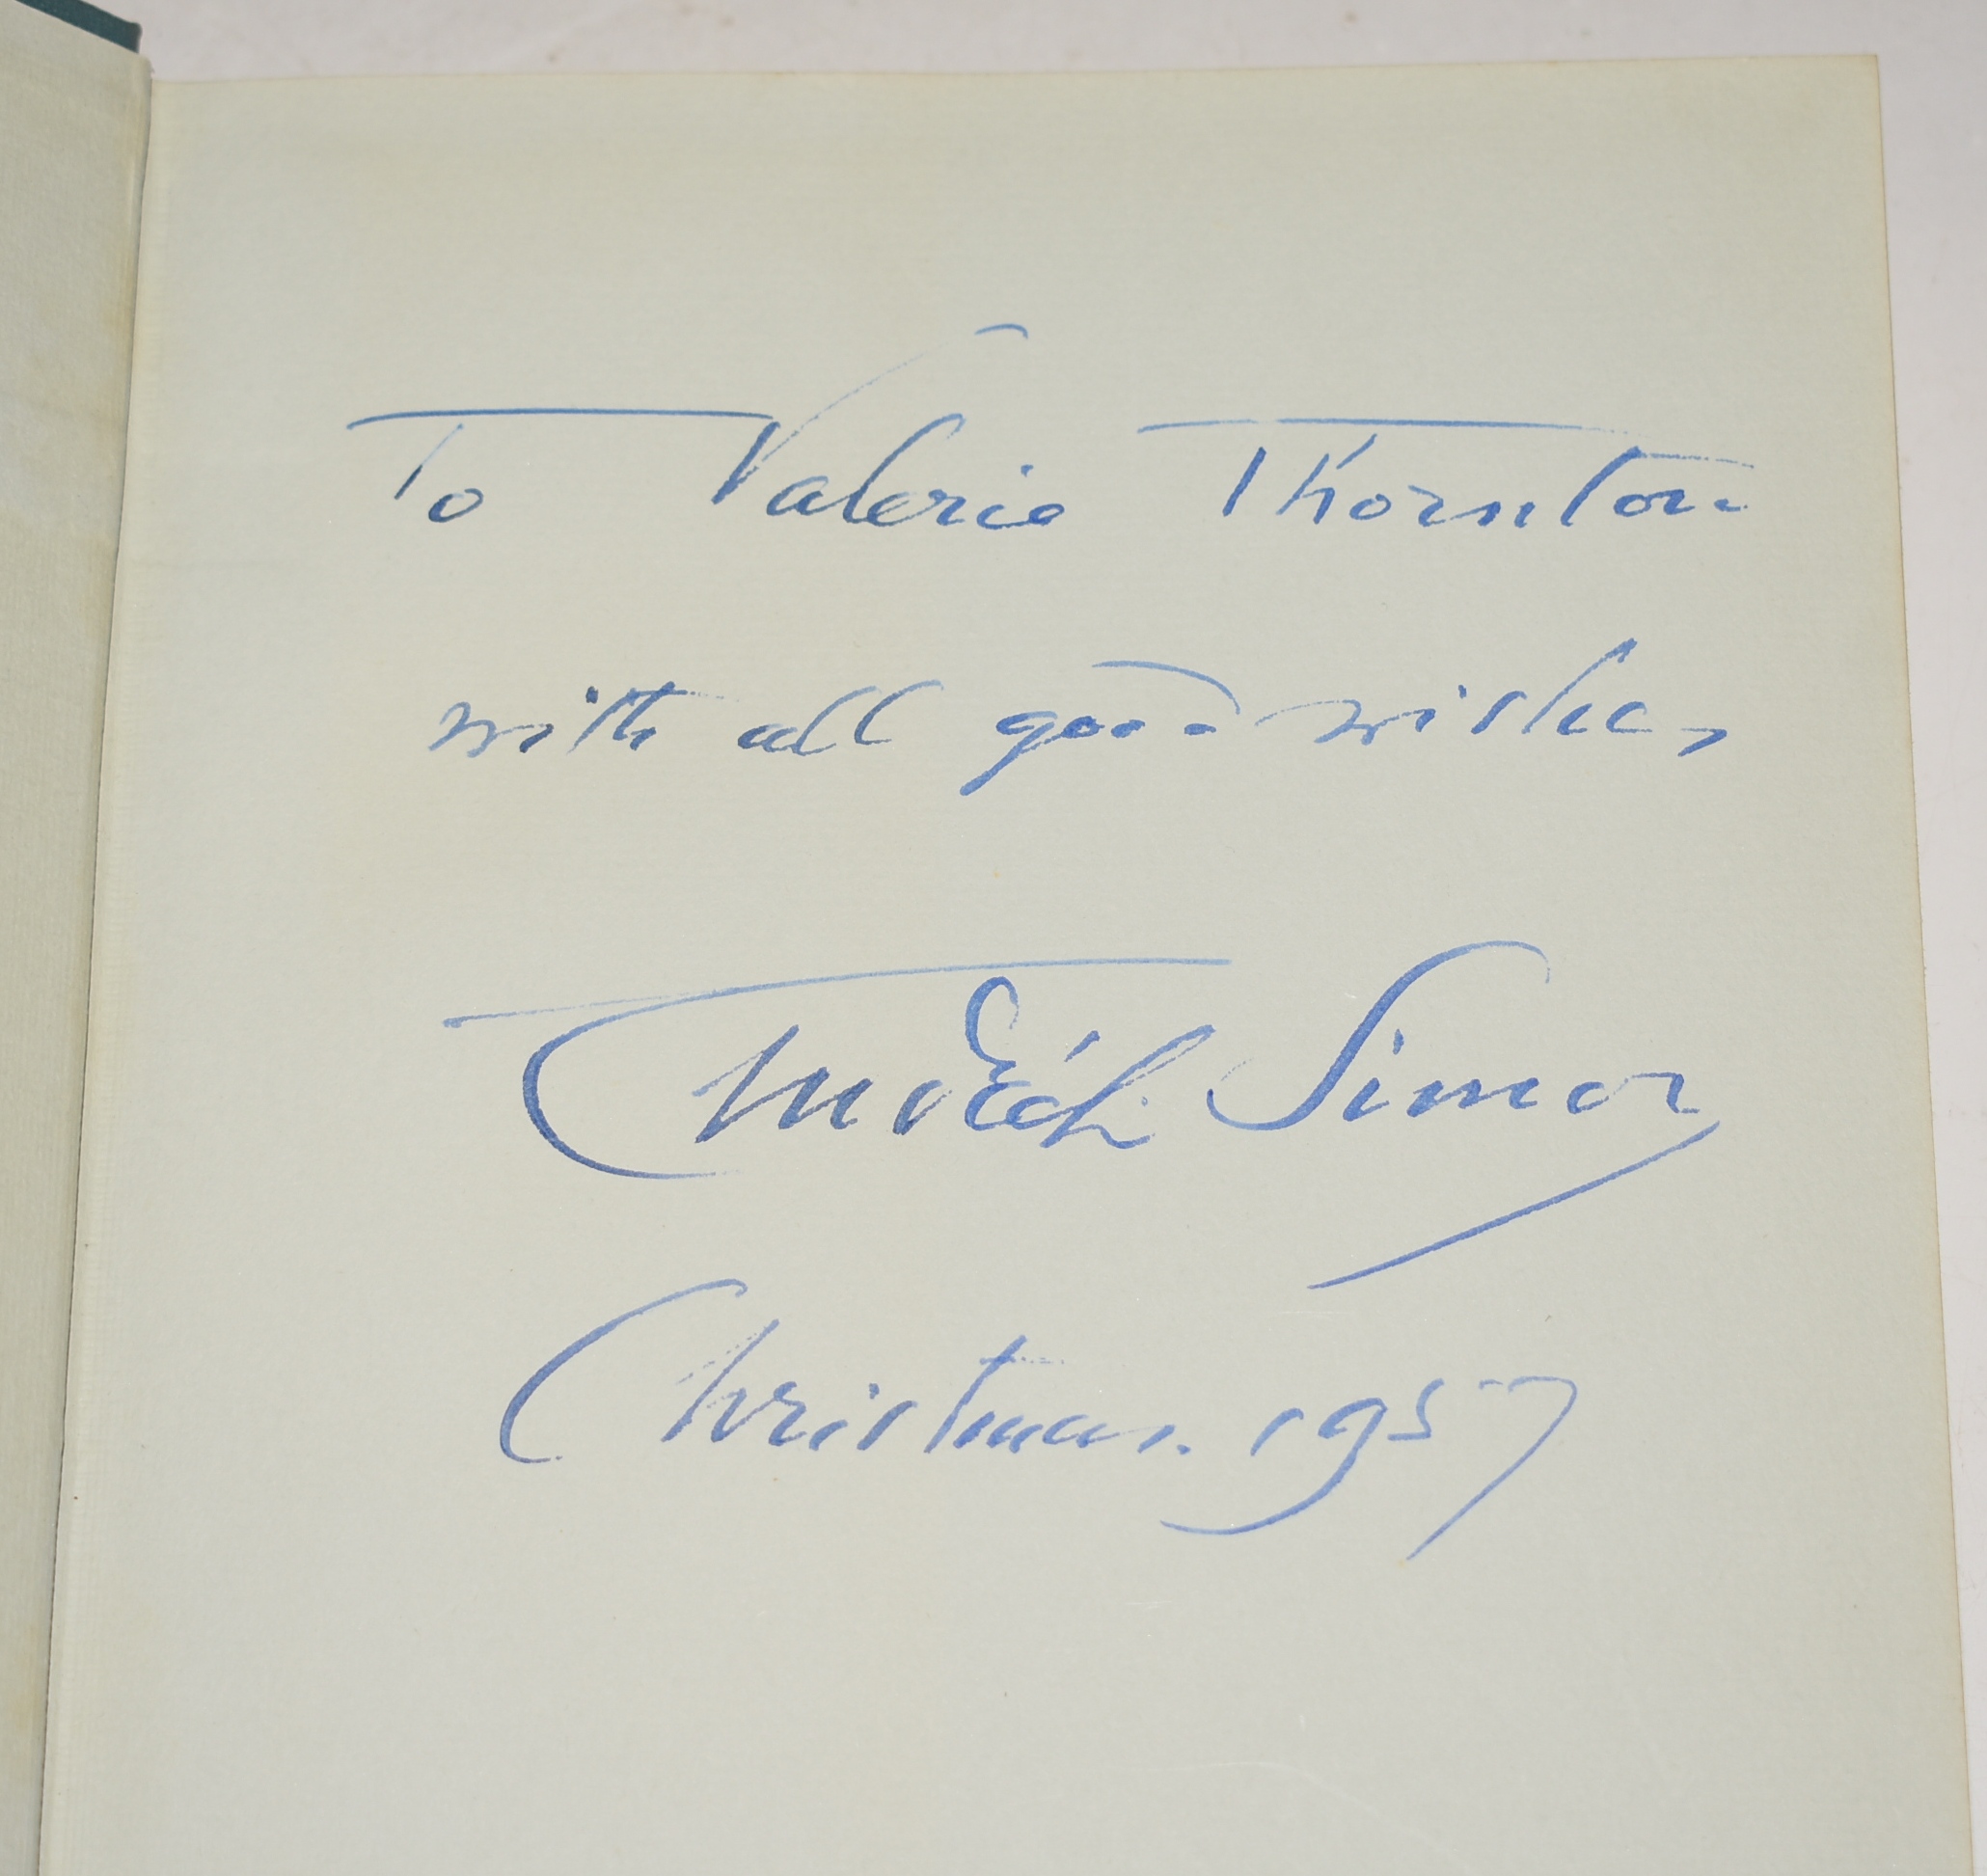 To Valerie Thornton
with all good wishes
André L. Simon
Christmas 1957